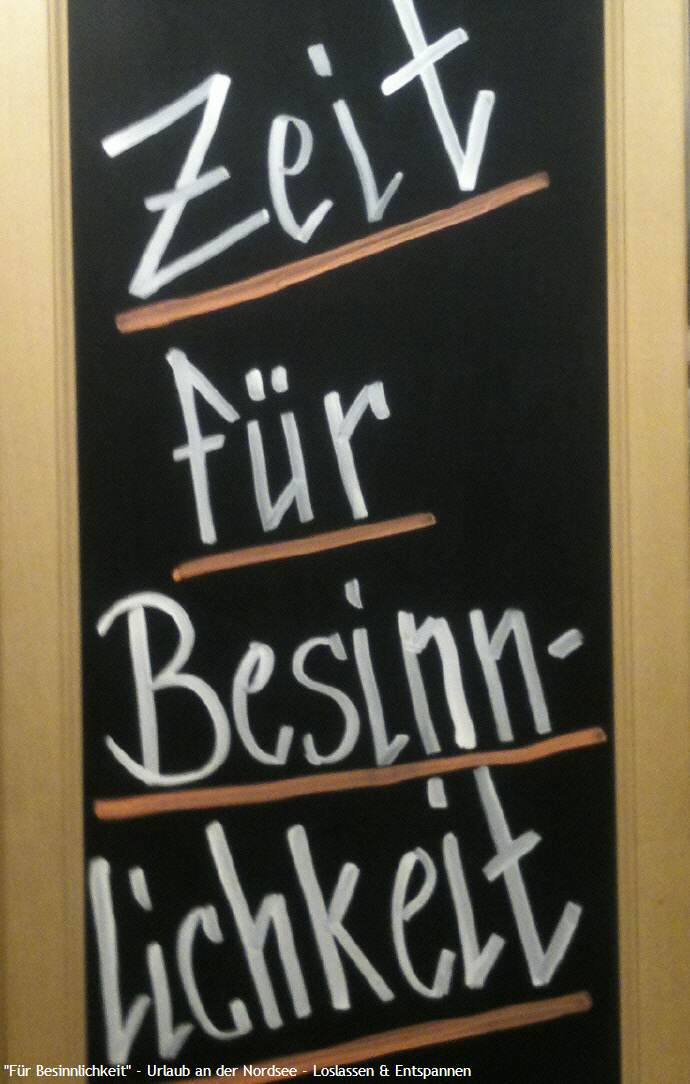 Zeit
für
Besinn-
lichkeit
"Für Besinnlichkeit" - Urlaub an der Nordsee - Loslassen & Entspannen